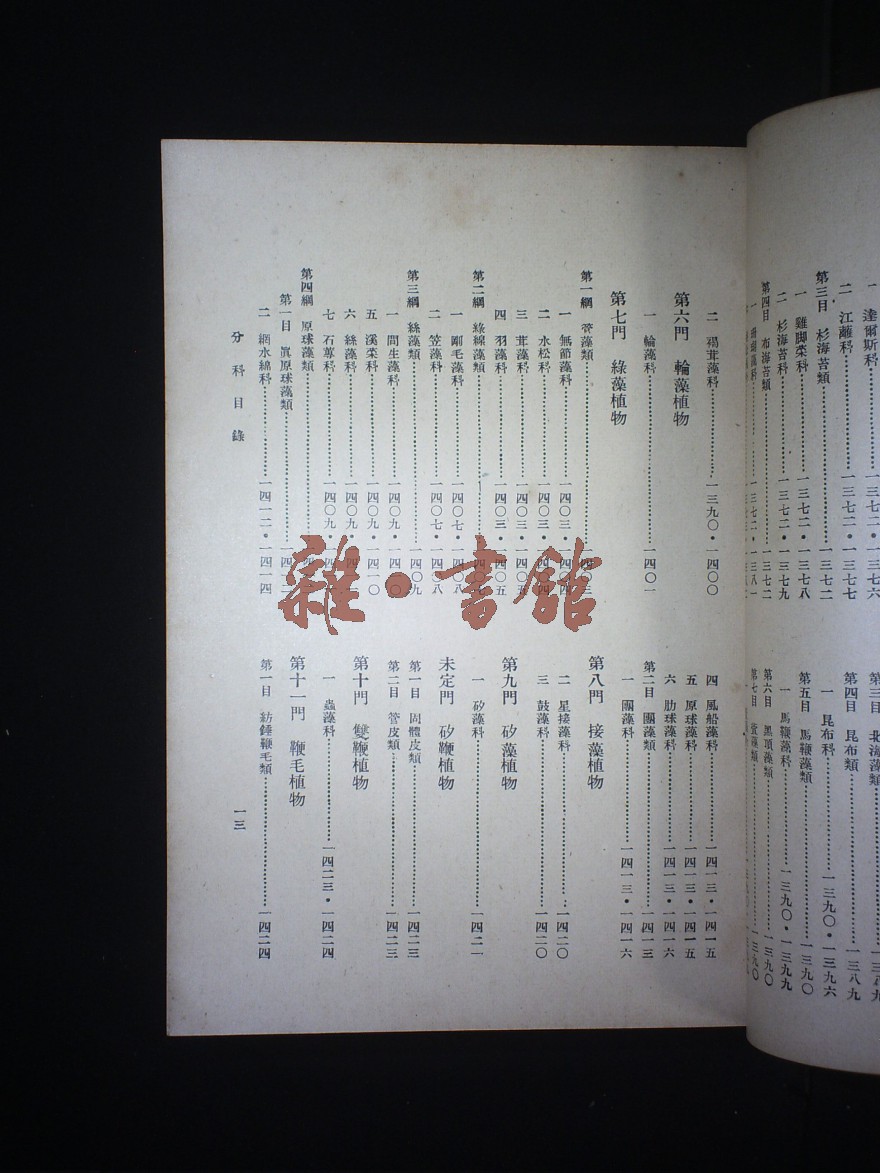 一 達爾斯科 一三七二•一三七六
二 江蘺科 一三七二•一三七七
第三目 杉海苔類 一三七二
一 雞脚菜科 一三七二•一三七八
二 杉海苔科 一三七二•一三七九
第四目 布海苔類 一三七二
第三目 北海藻類 一三八九
第四目 昆布類 一三八九
一 昆布科 一三九〇•一三九六
第五目 馬鞭藻類 一三九〇
一 馬鞭藻科 一三九〇•一三九九
第六目 黑頂藻類 一三九〇
二 褐茸藻科 一三九〇•一四〇〇
第六門 輪藻植物
一 輪藻科 一四〇一
第七門 綠藻植物
第一綱 管藻類 一四〇三
一 無節藻科 一四〇三•一四〇四
二 水松科 一四〇三•一四〇四
三 茸藻科 一四〇三•一四〇五
四 羽藻科 一四〇三•一四〇五
第二綱 綠線藻類 一四〇七
一 剛毛藻科 一四〇七•一四〇八
二 笠藻科 一四〇七•一四〇八
第三綱 絲藻類 一四〇九
一 間生藻科 一四〇九•一四一〇
五 溪菜科 一四〇九•一四一〇
六 絲藻科 一四〇九•一四一
七 石蓴科 一四〇九•一四一
第四綱 原球藻類 一四一二
第一目 眞原球藻類 一四一二
二 網水綿科 一四一二•一四一四
四 風船藻科 一四一三•一四一五
五 原球藻科 一四一三•一四一五
六 肋球藻科 一四一三•一四一六
第二目 團藻類 一四一三
一 團藻科 一四一三•一四一六
第八門 接藻植物
二 星接藻科 一四二〇
三 鼓藻科 一四二〇
第九門 矽藻植物
一 矽藻科 一四二一
未定門 矽鞭植物
第一目 固體皮類 一四二三
第二目 管皮類 一四二三
第十門 雙鞭植物
一 蟲藻科 一四二三•一四二四
第十一門 鞭毛植物
第一目 紡錘鞭毛類 一四二四
分科目錄
一三
雜•書館